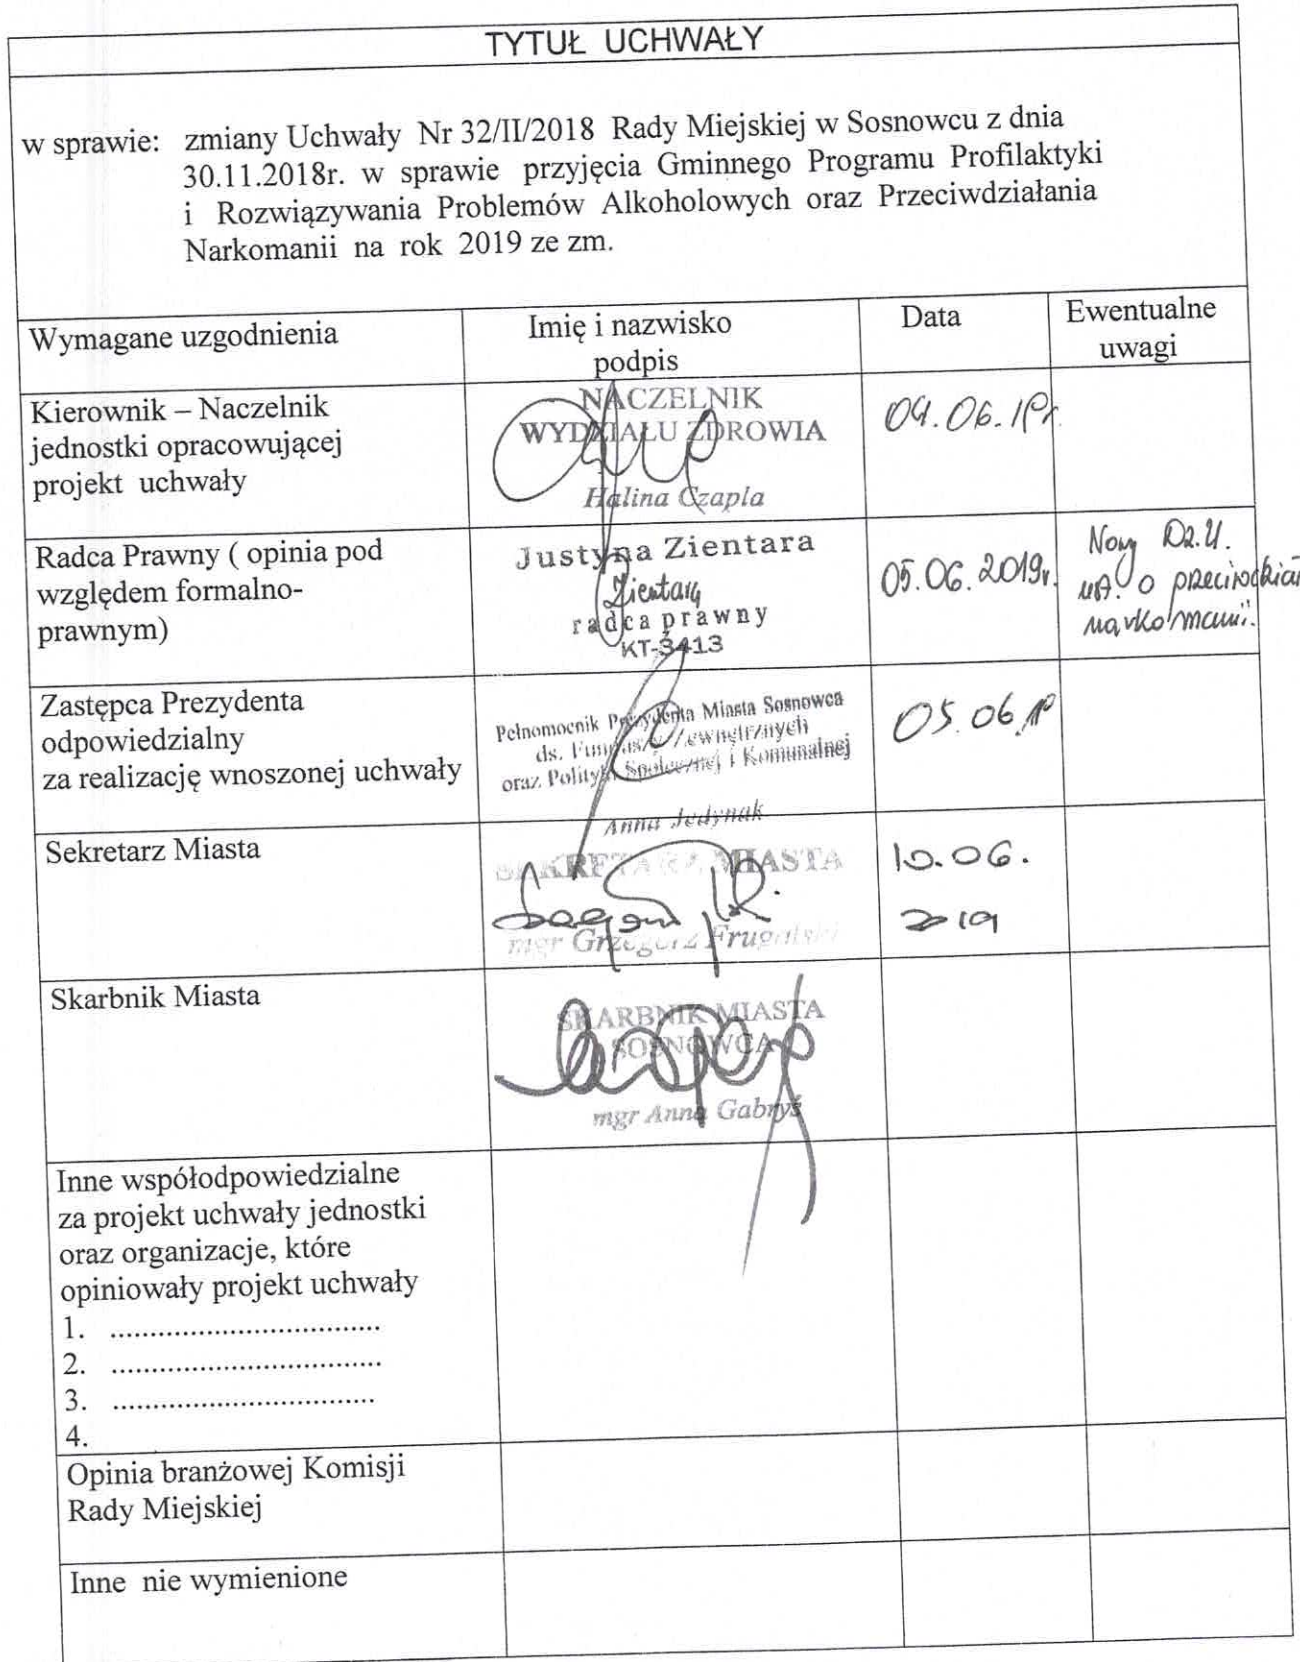 TYTUŁ UCHWAŁY
w sprawie: zmiany Uchwały Nr 32/II/2018 Rady Miejskiej w Sosnowcu z dnia
30.11.2018r. w sprawie przyjęcia Gminnego Programu Profilaktyki
i Rozwiązywania Problemów Alkoholowych oraz Przeciwdziałania
Narkomanii na rok 2019 ze zm.
Wymagane uzgodnienia
Imię i nazwisko
podpis
Data
Ewentualne
uwagi
Kierownik – Naczelnik
jednostki opracowującej
projekt uchwały
NACZELNIK
WYDZIAŁU ZDROWIA
Halina Czapla
04.06.19r.
Radca Prawny ( opinia pod
względem formalno-
prawnym)
Justyna Zientara
Zientara
radca prawny
KT-3413
05.06.2019r.
Nowy Dz.U.
ust. o przeciwdział
narkomanii.
Zastępca Prezydenta
odpowiedzialny
za realizację wnoszonej uchwały
Pełnomocnik Prezydenta Miasta Sosnowca
ds. Funduszy Zewnętrznych
oraz Polityki Społecznej i Komunalnej
Anna Jedynak
05.06.19
Sekretarz Miasta
SEKRETARZ MIASTA
mgr Grzegorz Frugalski
10.06.
2019
Skarbnik Miasta
SKARBNIK MIASTA
SOSNOWCA
mgr Anna Gabryś
Inne współodpowiedzialne
za projekt uchwały jednostki
oraz organizacje, które
opiniowały projekt uchwały
1. ..................................
2. ..................................
3. .................................
4.
Opinia branżowej Komisji
Rady Miejskiej
Inne nie wymienione